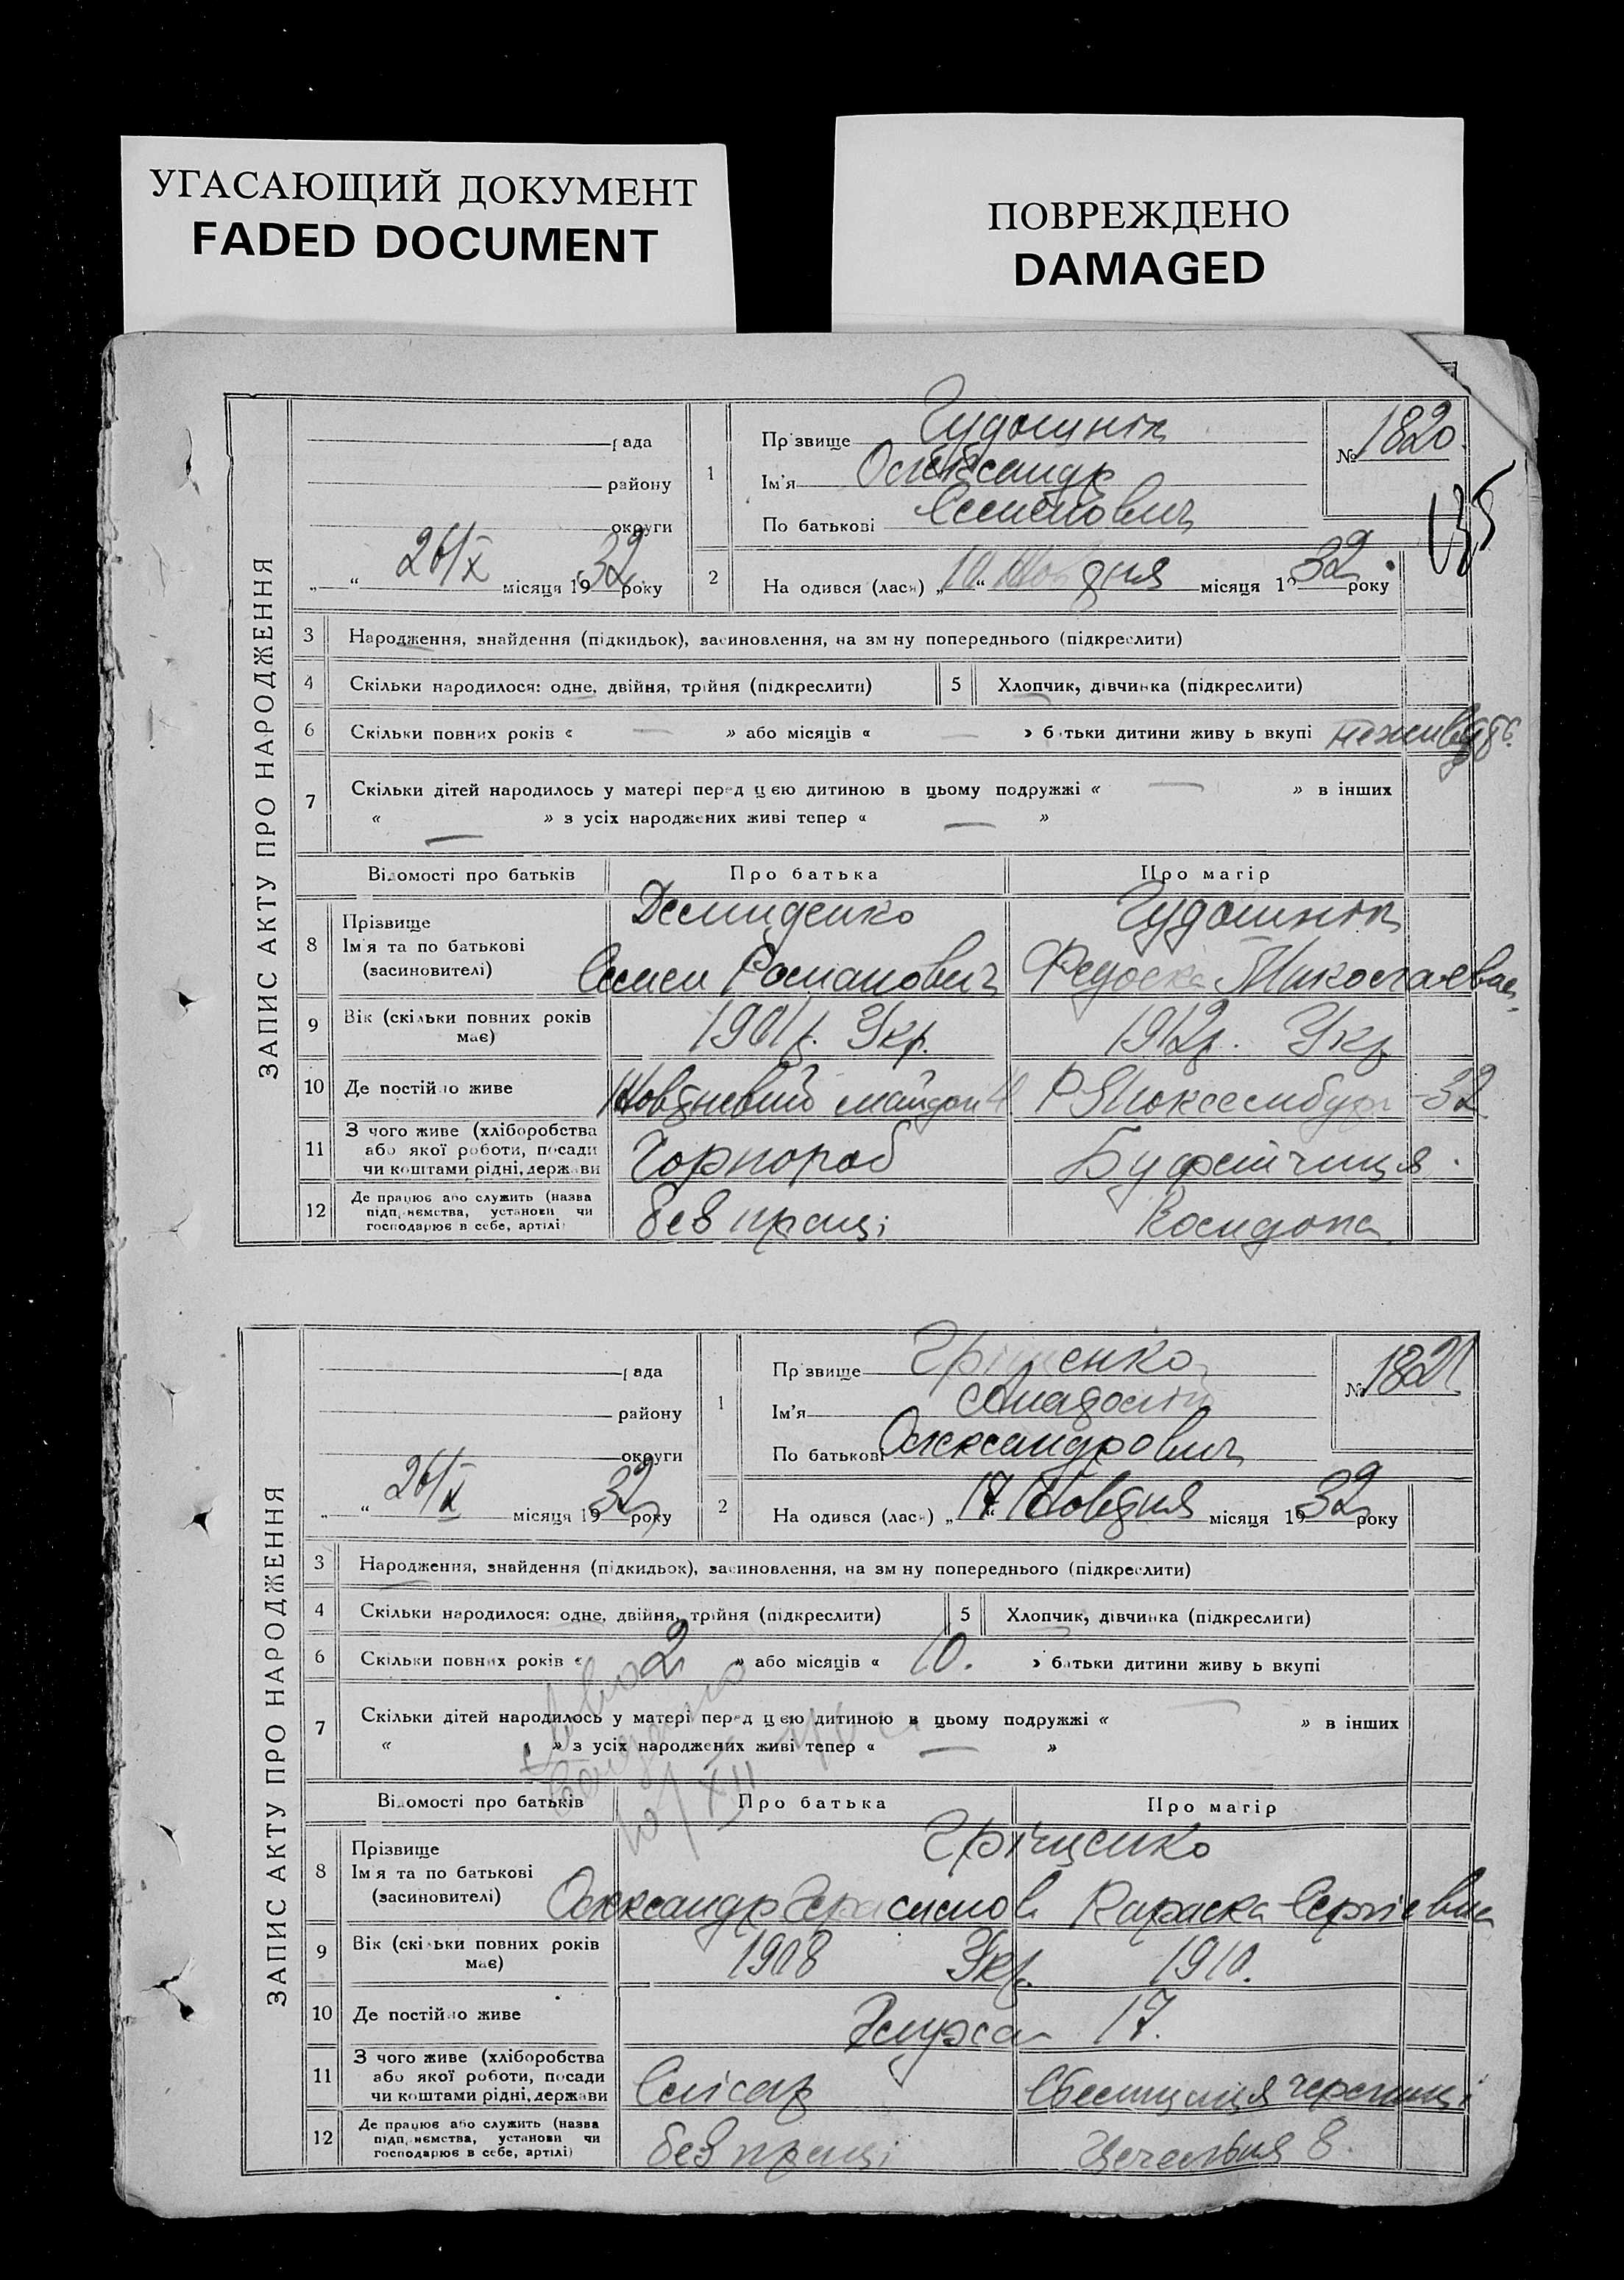 УГАСАЮЩИЙ ДОКУМЕНТ
FADED DOCUMENT
ПОВРЕЖДЕНО
DAMAGED
ЗАПИС АКТУ ПРО НАРОДЖЕННЯ
рада
району
округи
„ “ 26/X місяця 1932 року
1
Прізвище
Ім'я Олександр
По батькові Семенович
№ 1820.
135
2 На одився (лась) „10“ Жовтня місяця 1932 року
3 Народження, знайдення (підкидьок), засиновлення, на зм ну попереднього (підкреслити)
4 Скільки народилося: одне, двійня, трійня (підкреслити)
5 Хлопчик, дівчинка (підкреслити)
6 Скільки повних років « — » або місяців « — » батьки дитини живу ь вкупі
7 Скільки дітей народилось у матері перед цею дитиною в цьому подружжі « — » в інших
« — » з усіх народжених живі тепер « — »
Відомості про батьків Про батька Про матір
8 Прізвище
Ім'я та по батькові
(засиновителі)
Демиденко
Семен Романович
Миколаевна
9 Вік (скільки повних років
має)
1901р. Укр. 1912р. Укр
10 Де постійно живе Жовтневий майдан 4 Р Люксембург -32
11 З чого живе (хліборобства
або якої роботи, посади
чи коштами рідні, держави
Чорнороб Буфетчиця.
12 Де працює або служить (назва
підприємства, установи чи
господарює в себе, артілі)
без праці
ЗАПИС АКТУ ПРО НАРОДЖЕННЯ
рада
району
округи
„ “ 26/X місяця 1932 року
1
Прізвище Гріщенко
Ім'я
По батькові Олександрович
№ 1821
2 На одився (лась) „17“ Жовтня місяця 1932 року
3 Народження, знайдення (підкидьок), засиновлення, на зм ну попереднього (підкреслити)
4 Скільки народилося: одне, двійня, трійня (підкреслити)
5 Хлопчик, дівчинка (підкреслити)
6 Скільки повних років « 2 » або місяців « 10. » батьки дитини живу ь вкупі
7 Скільки дітей народилось у матері перед цею дитиною в цьому подружжі « — » в інших
« » з усіх народжених живі тепер « — »
10/XII
Відомості про батьків Про батька Про матір
8 Прізвище
Ім'я та по батькові
(засиновителі)
Гріщенко
Олександр Герасимов Сергіевна
9 Вік (скільки повних років
має)
1908 Укр. 1910.
10 Де постійно живе 17.
11 З чого живе (хліборобства
або якої роботи, посади
чи коштами рідні, держави
Слісар
12 Де працює або служить (назва
підприємства, установи чи
господарює в себе, артілі)
без праці 8.